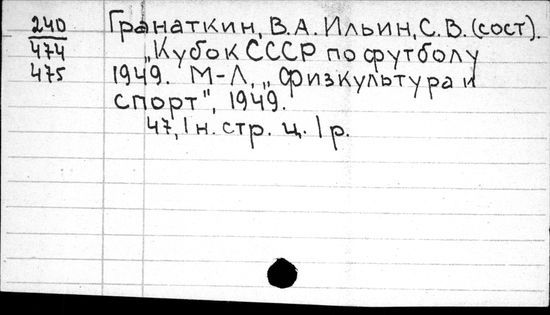 240 Гранаткин, В.А. Ильин, С.В. (сост).
474 „Кубок СССР по футболу
475 1949. М-Л, „Физкультура и
спорт", 1949.
47, 1 н. стр. ц. 1 р.